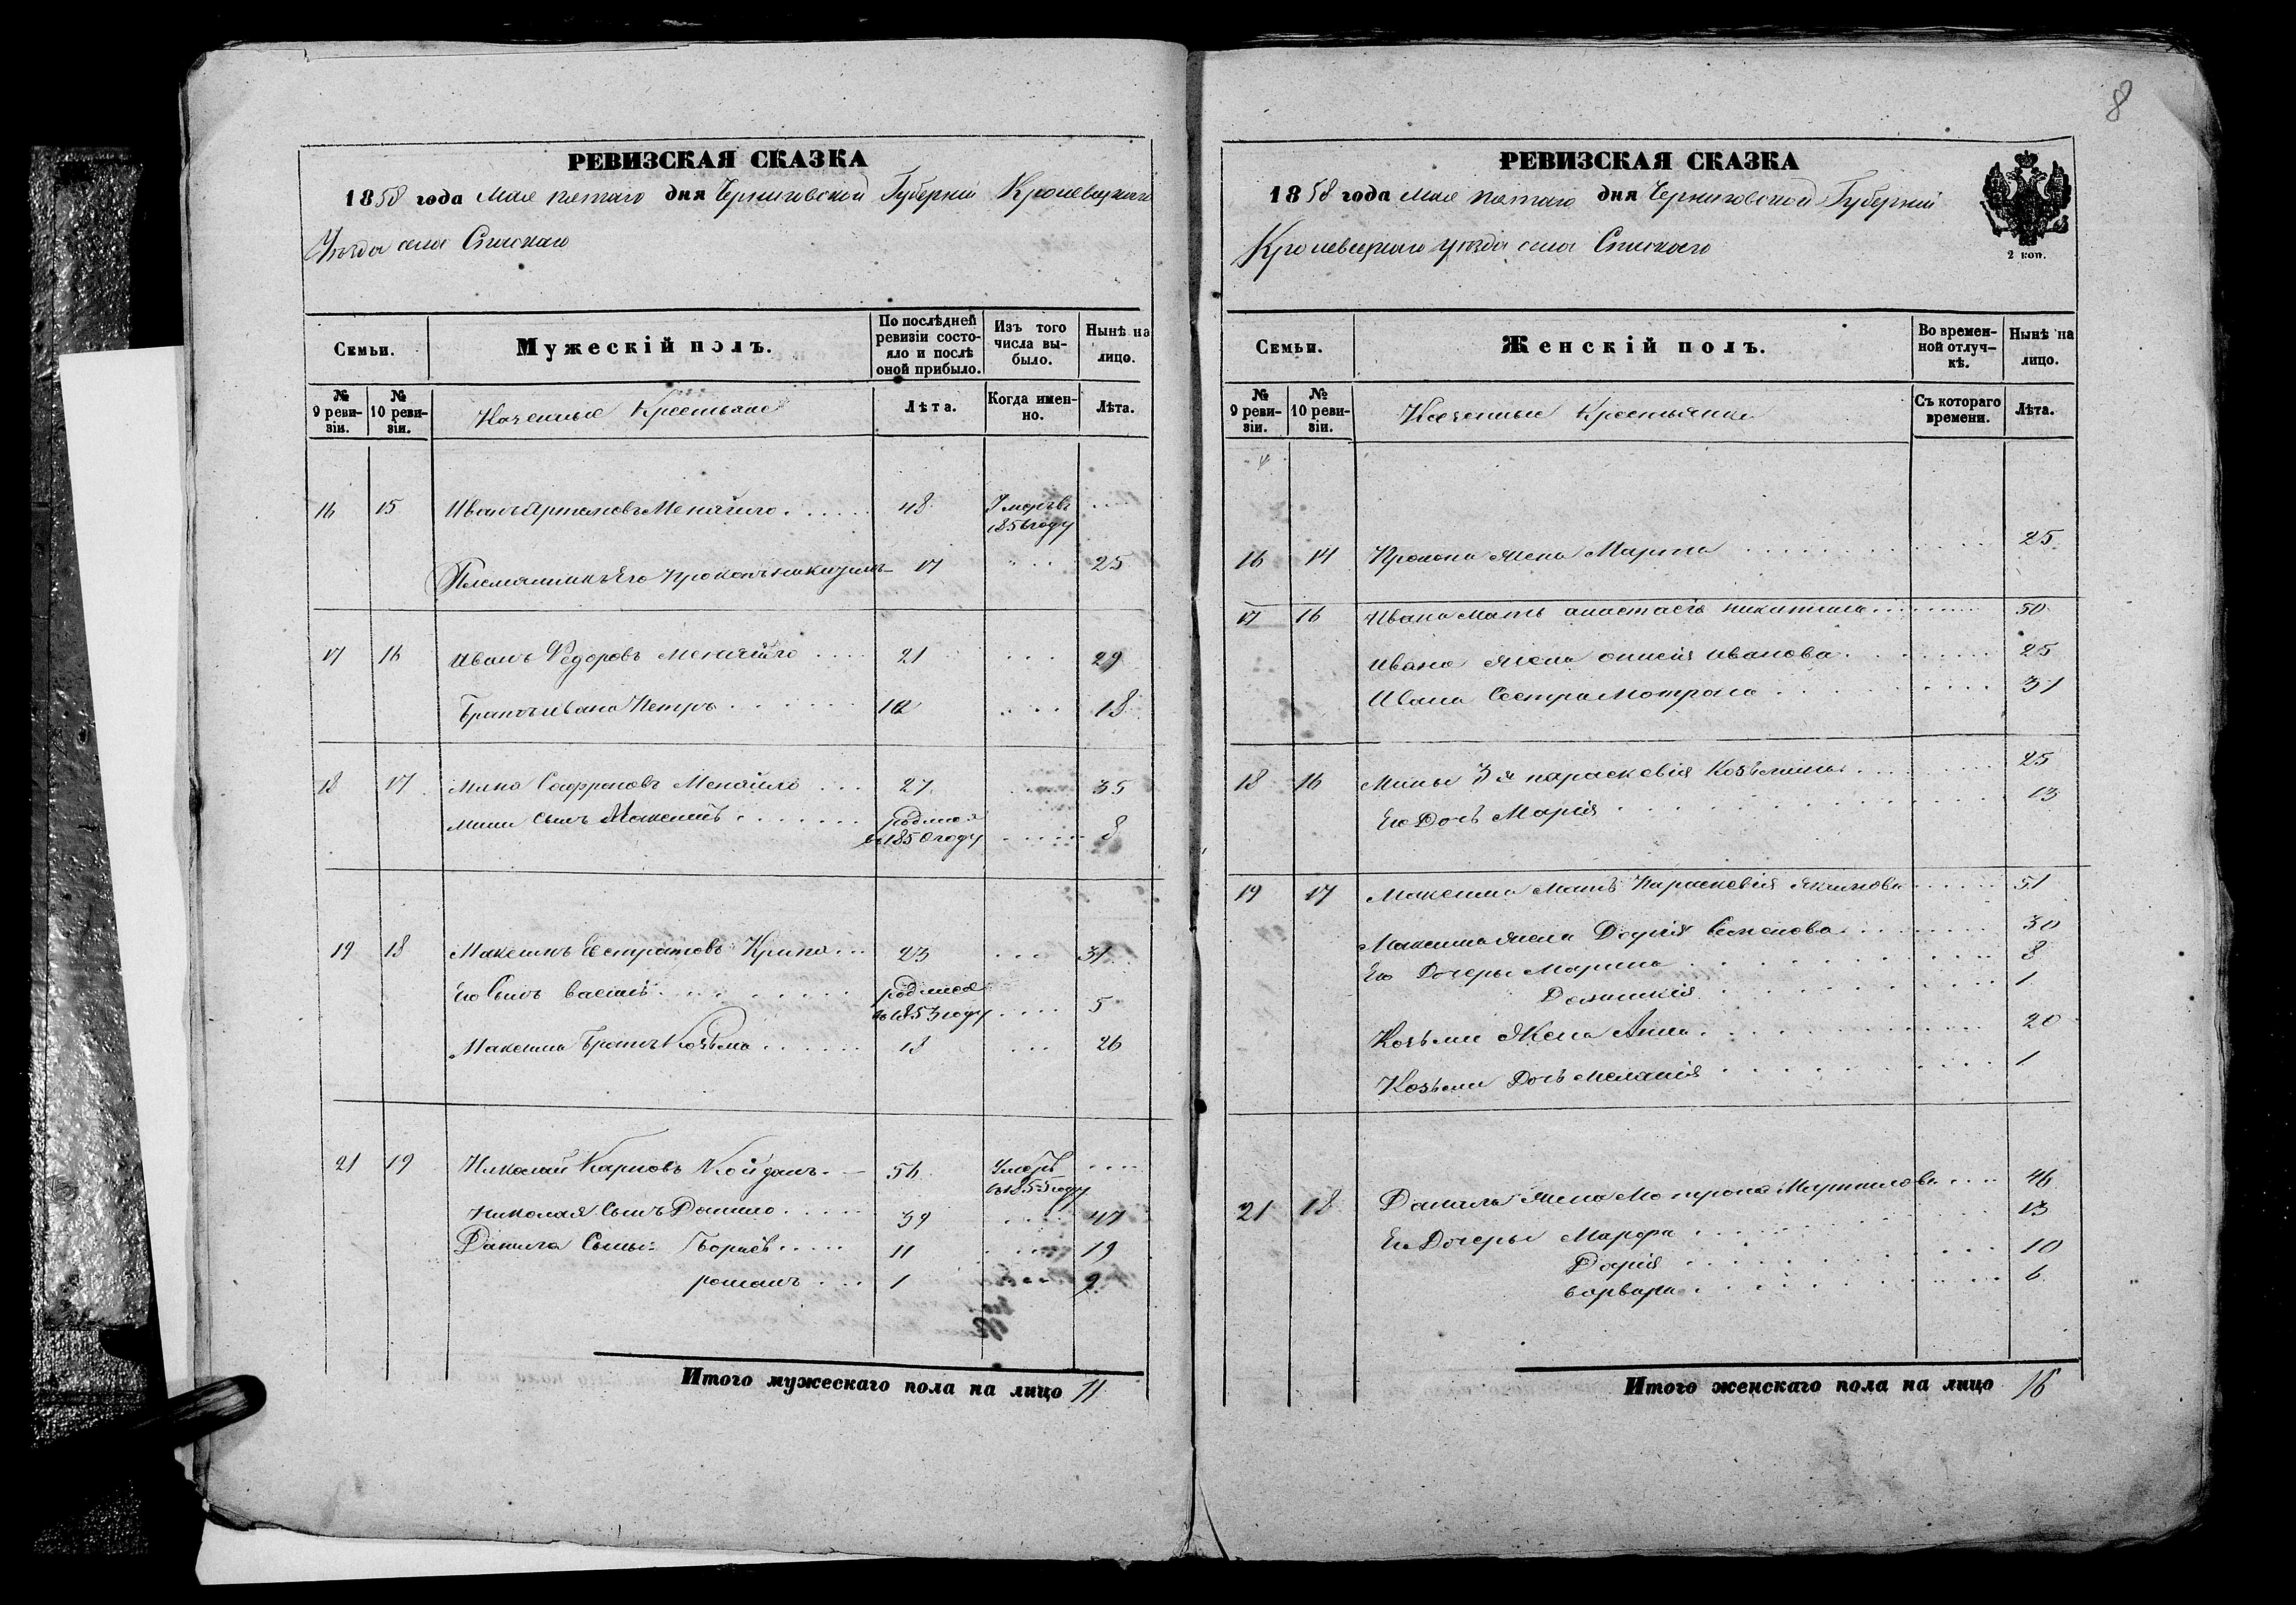 8
РЕВИЗСКАЯ СКАЗКА
1858 года Мая пятаго дня Черниговской Губернiи Кролевецкаго
Уѣзда села Спаскаго
Семьи.
Мужескiй полъ.
По послѣдней ревизiи состо-
яло и послѣ
оной прибыло.
Изъ того
числа вы-
было.
Нынѣ на
лицо.
№
9 реви-
зiи.
№
10 реви-
зiи.
Казенные Крестьяне
Лѣта.
Когда имен-
но.
Лѣта.
16 15 Иванъ Артамовъ Менайло 48 Умеръ
1856 году
Племянникъ Его Прокопъ 17 25
17 16 Иванъ Федоровъ Менайло 21 29
Братъ Ивана Петръ 10 18
18 17 Мина Софроновъ Менайло 27 35
Мины Сынъ Максимъ родился
въ 1850 году 8
19 18 Максимъ Евстратовъ 23 31
Его Сынъ Василiй родился
въ 1853 году 5
Максима Братъ Козьма 18 26
21 19 Николай Карповъ Койданъ 56 Умеръ
въ 1855 году
Николая Сынъ Данило 39 47
Данила Сыны: 11 19
романъ 1 9
Итого мужескаго пола на лицо 11
РЕВИЗСКАЯ СКАЗКА
1858 года Мая пятаго дня Черниговской Губернiи
Кролевецкаго уѣзда села Спаскаго
2 коп.
Семьи.
Женскiй полъ.
Во времен-
ной отлуч-
кѣ.
Нынѣ на
лицо.
№
9 реви-
зiи.
№
10 реви-
зiи.
Казенные Крестьянки
Съ котораго
времени.
Лѣта.
16 14 Прокопа жена Марта 25
17 16 Ивана Мать анастасiя никитина 50
Ивана жена Иванова 25
Ивана Сестра Мотрона 31
18 16 Мины параскевiя Козьмина 25
Его Дочь Марiя 13
19 17 Максима Мать Параскевiя Якимова 51
Максима жена Дофiя Семенова 30
Его Дочеры Марина 8
1
Козьмы Жена Анна 20
Козьмы Дочь меланiя 1
21 18 Данила жена Мотрона Мартинова 46
Его Дочеры Марфа 13
Дофiя 10
варвара 6
Итого женскаго пола на лицо 16